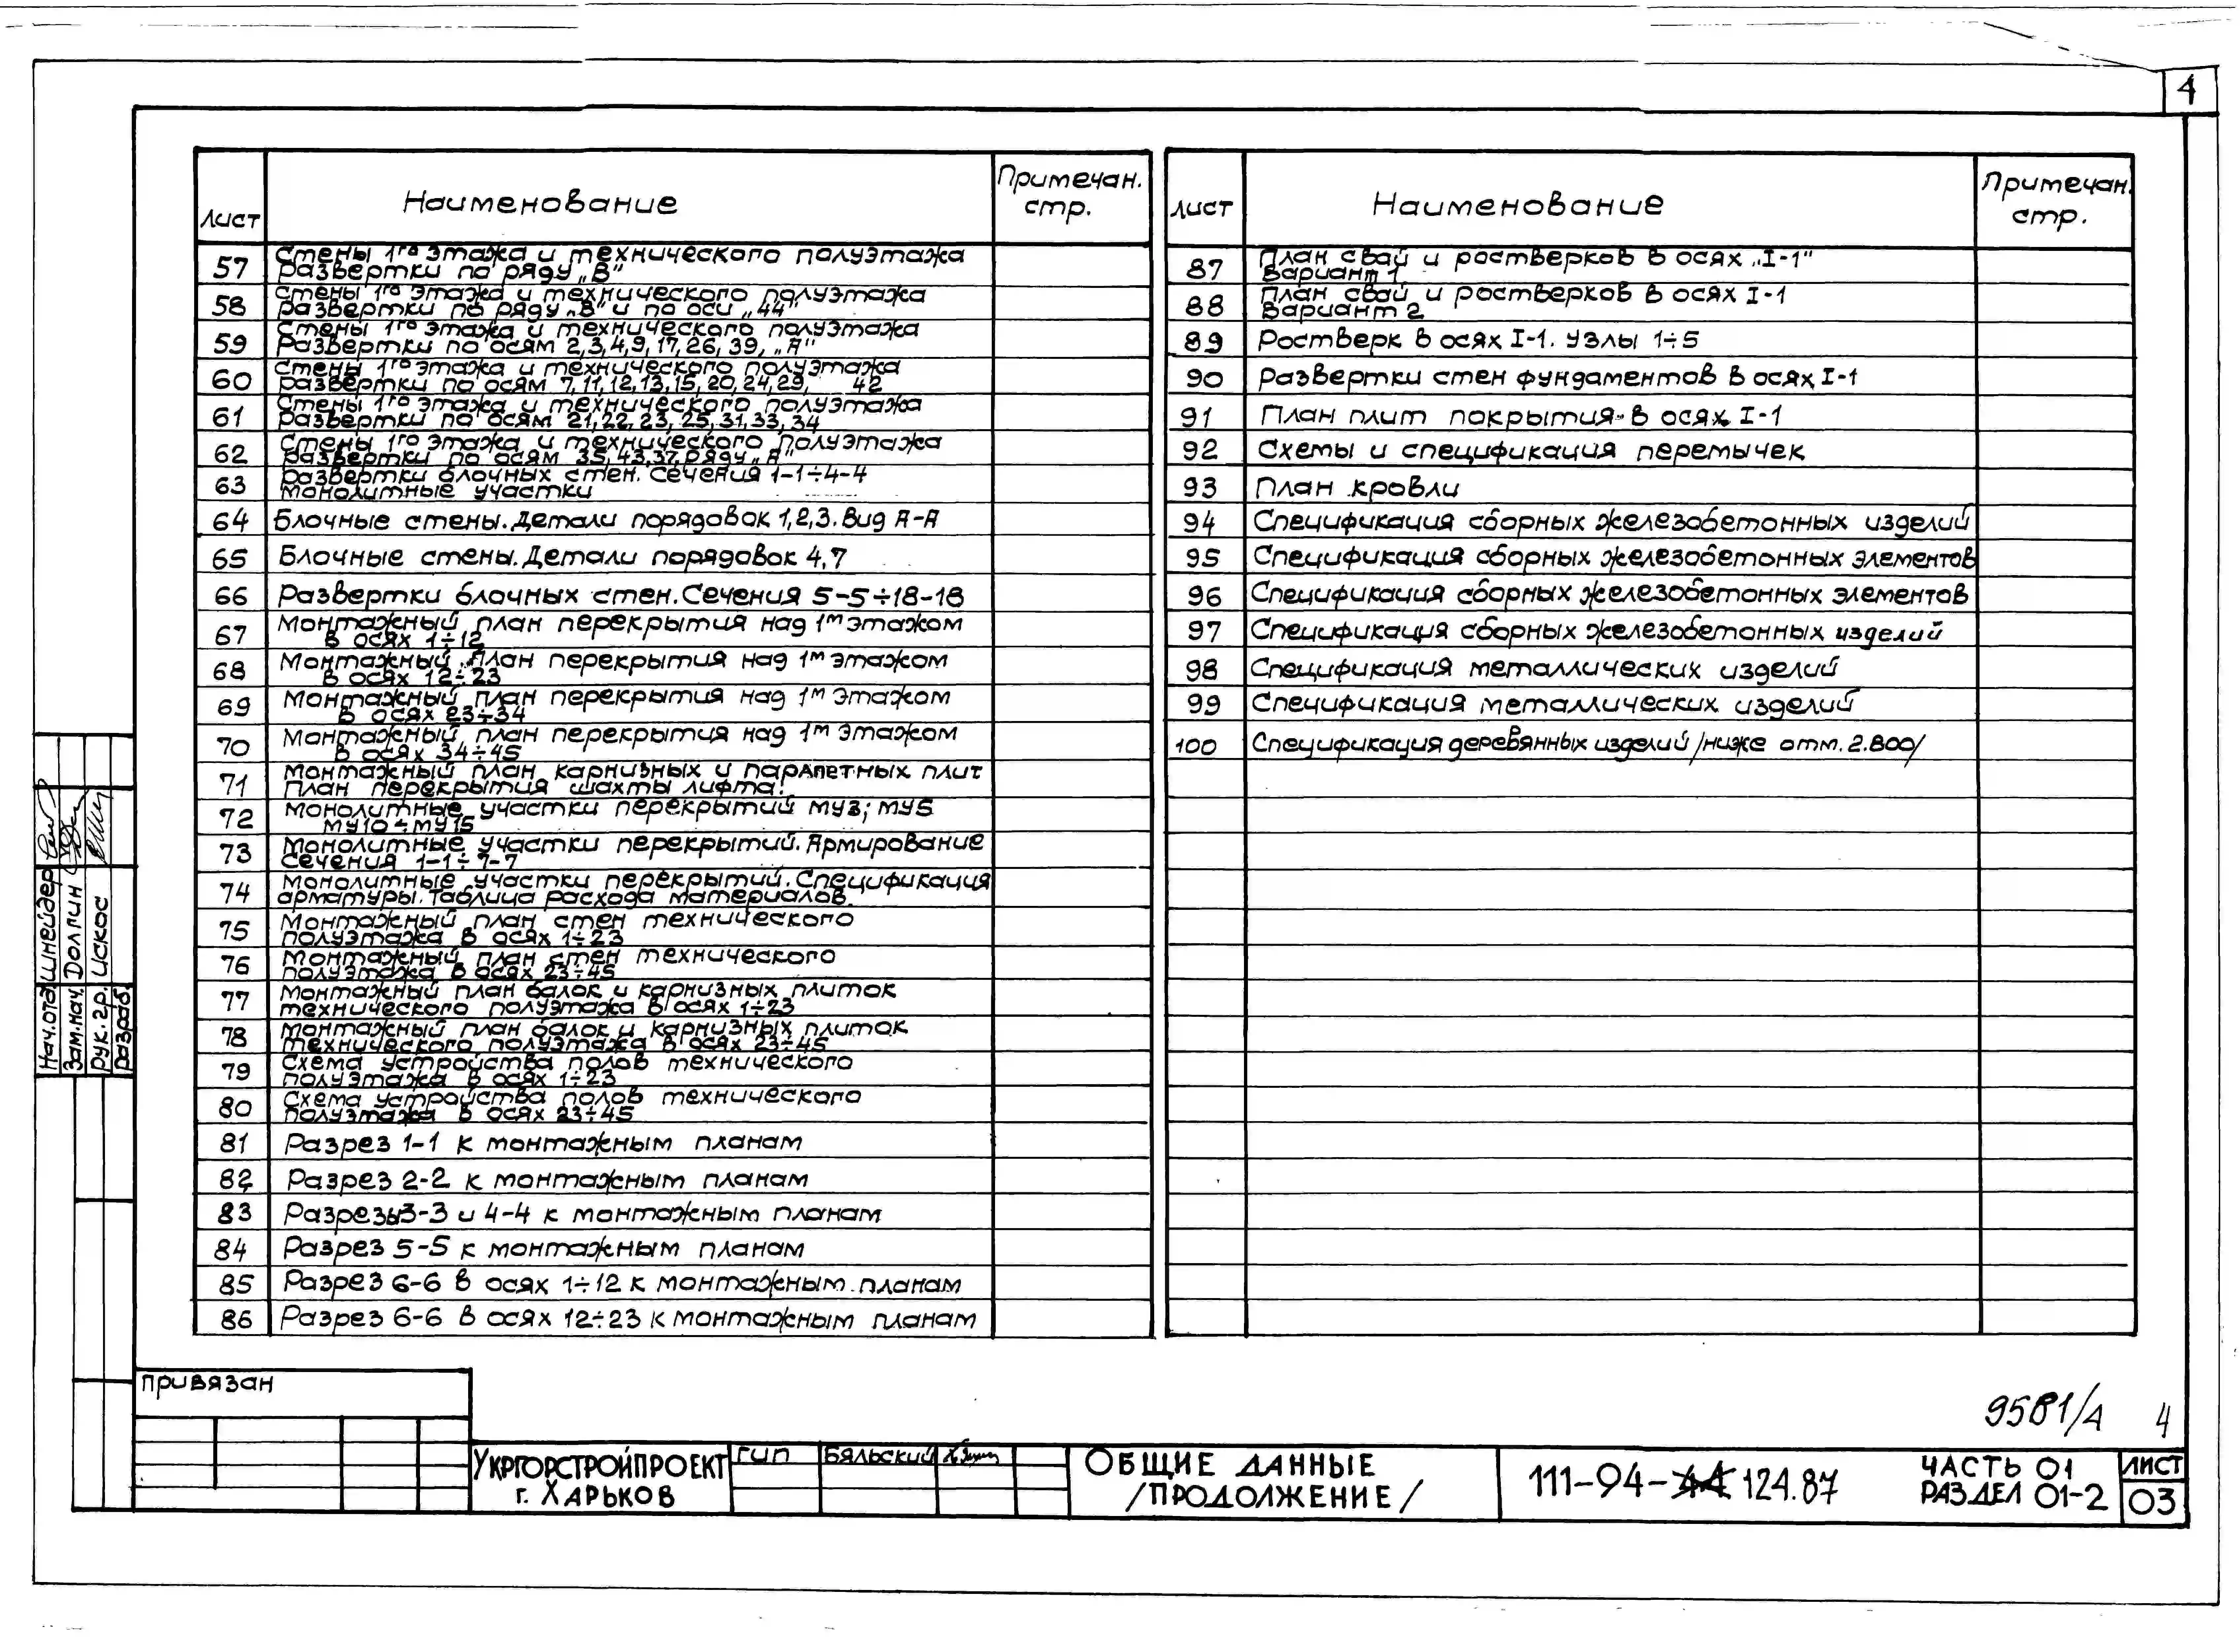 4
Лист Наименование Примечан. стр.
57 Стены 1го этажа и технического полуэтажа
Развертки по ряду „В"
58 Стены 1го этажа и технического полуэтажа
Развертки по ряду „В" и по оси „44"
59 Стены 1го этажа и технического полуэтажа
Развертки по осям 2,3,4,9,17,26,39, „А"
60 Стены 1го этажа и технического полуэтажа
Развертки по осям 7,11,12,13,15,20,24,29, 42
61 Стены 1го этажа и технического полуэтажа
Развертки по осям 21,22,23,25,31,33,34
62 Стены 1го этажа и технического полуэтажа
Развертки по осям 35,43,37, ряду „А"
63 Развертки блочных стен. Сечения 1-1÷4-4
Монолитные участки
64 Блочные стены. Детали порядовок 1,2,3. Вид А-А
65 Блочные стены. Детали порядовок 4,7
66 Развертки блочных стен. Сечения 5-5÷18-18
67 Монтажный план перекрытия над 1м этажом
в осях 1÷12
68 Монтажный план перекрытия над 1м этажом
в осях 12÷23
69 Монтажный план перекрытия над 1м этажом
в осях 23÷34
70 Монтажный план перекрытия над 1м этажом
в осях 34÷45
71 Монтажный план карнизных и парапетных плит
План перекрытия шахты лифта.
72 Монолитные участки перекрытий МУ3; МУ5
МУ10÷МУ15
73 Монолитные участки перекрытий. Армирование
Сечения 1-1÷7-7
74 Монолитные участки перекрытий. Спецификация
арматуры. Таблица расхода материалов.
75 Монтажный план стен технического
полуэтажа в осях 1÷23
76 Монтажный план стен технического
полуэтажа в осях 23÷45
77 Монтажный план балок и карнизных плиток
технического полуэтажа в осях 1÷23
78 Монтажный план балок и карнизных плиток
технического полуэтажа в осях 23÷45
79 Схема устройства полов технического
полуэтажа в осях 1÷23
80 Схема устройства полов технического
полуэтажа в осях 23÷45
81 Разрез 1-1 к монтажным планам
82 Разрез 2-2 к монтажным планам
83 Разрезы 3-3 и 4-4 к монтажным планам
84 Разрез 5-5 к монтажным планам
85 Разрез 6-6 в осях 1÷12 к монтажным планам
86 Разрез 6-6 в осях 12÷23 к монтажным планам
Лист Наименование Примечан. стр.
87 План свай и ростверков в осях „I-1"
Вариант 1
88 План свай и ростверков в осях I-1
Вариант 2
89 Ростверк в осях I-1. Узлы 1÷5
90 Развертки стен фундаментов в осях I-1
91 План плит покрытия в осях I-1
92 Схемы и спецификация перемычек
93 План кровли
94 Спецификация сборных железобетонных изделий
95 Спецификация сборных железобетонных элементов
96 Спецификация сборных железобетонных элементов
97 Спецификация сборных железобетонных изделий
98 Спецификация металлических изделий
99 Спецификация металлических изделий
100 Спецификация деревянных изделий /ниже отм. 2.800/
Нач.отд Шнейдер
Зам.нач. Долгин
Рук.гр. Искос
Разраб.
Привязан
9581/А 4
Укргорстройпроект
г. Харьков
ГИП Бяльский
Общие данные
/продолжение/
111-94-124.87
Часть 01
Раздел 01-2
Лист
03